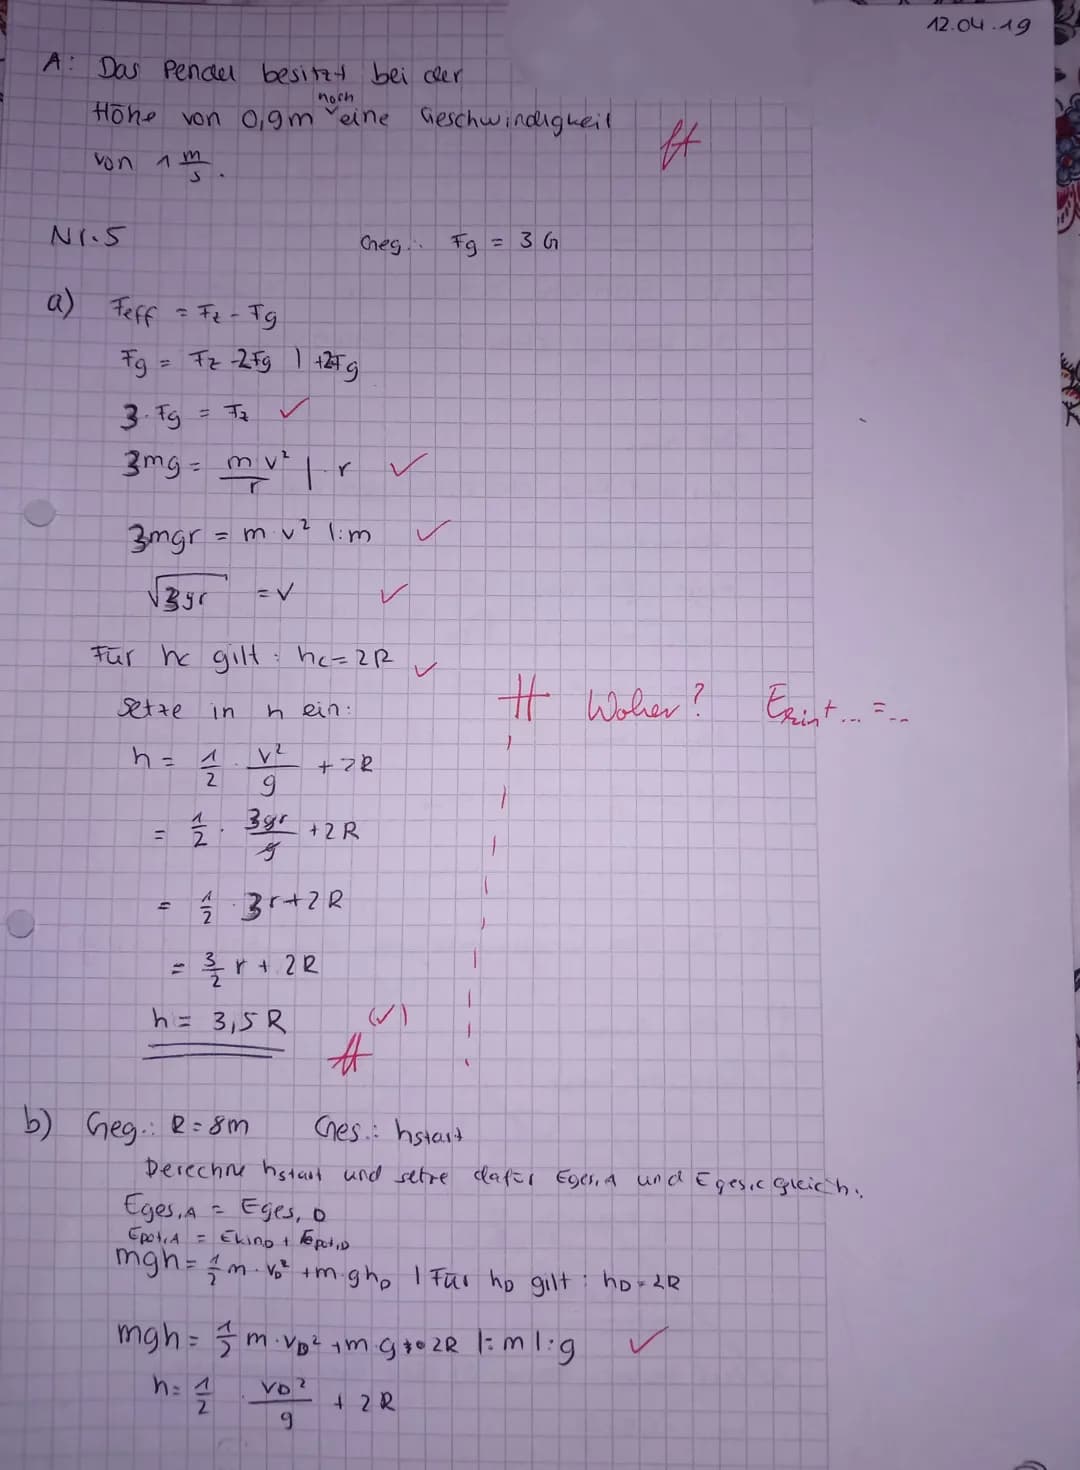 12.04.19
A: Das Pendel besitzt bei der
Höhe von 0,9m noch eine Geschwindigkeit
von 1 m/s.
Nr.5 Geg.: Fg = 3 G
a) Feff = Fz - Fg
Fg = Fz - 2Fg | +2Fg
3·Fg = Fz ✓
3mg = m v²/r | · r ✓
3mgr = m · v² |:m ✓
√3gr = v ✓
Für hc gilt: hc = 2R ✓
setze in h ein: Woher? Ekin + ... = ...
h = 1/2 · v²/g + 2R
= 1/2 · 3gr/g + 2R
= 1/2 · 3r + 2R
= 3/2 r + 2R
h = 3,5 R (✓)
b) Geg.: R = 8m Ges.: hstart
Berechne hstart und setze dafür Eges,A und Eges,c gleich.
Eges,A = Eges, D
Epot,A = Ekin,D + Epot,D
mgh = 1/2 m · vD² + m · g hD | Für hD gilt: hD = 2R
mgh = 1/2 m · vD² + m · g · 2R |:m |:g ✓
h = 1/2 · vD²/g + 2R